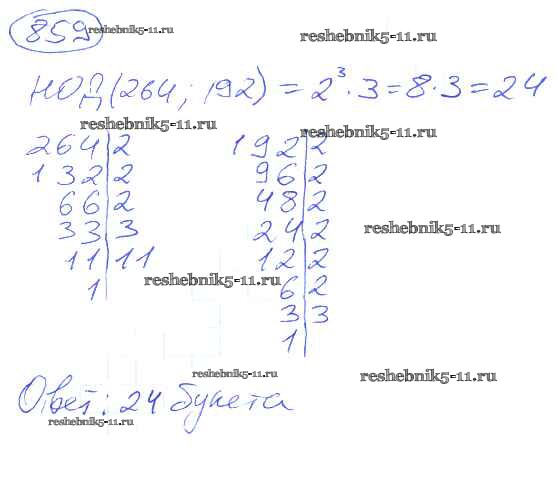 859 reshebnik5-11.ru
reshebnik5-11.ru
НОД(264; 192) = 2³·3=8·3=24
reshebnik5-11.ru
264|2 192|2
132|2 96|2
66|2 48|2
33|3 24|2 reshebnik5-11.ru
11|11 12|2
1 reshebnik5-11.ru 6|2
3|3
1
reshebnik5-11.ru reshebnik5-11.ru
Ответ: 24 букета
reshebnik5-11.ru